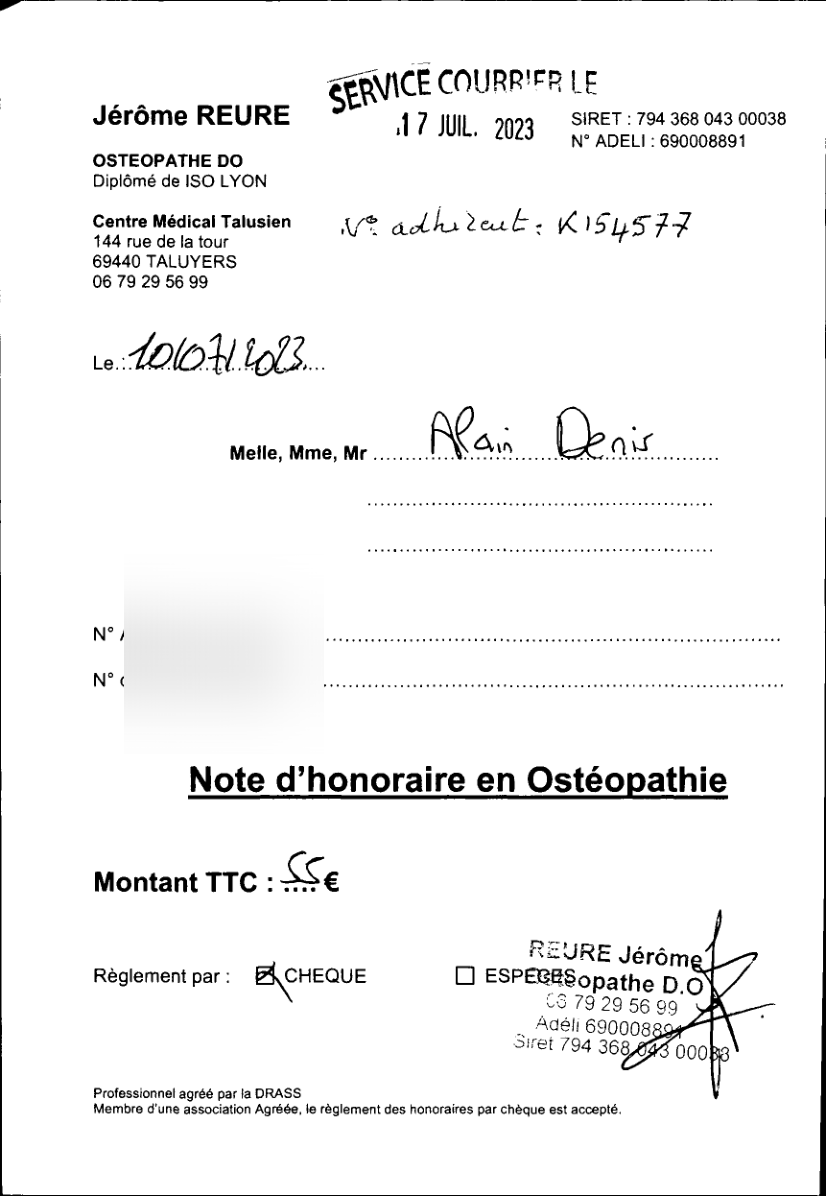 SERVICE COURRIER LE
17 JUIL. 2023
Jérôme REURE
SIRET : 794 368 043 00038
N° ADELI : 690008891
OSTEOPATHE DO
Diplômé de ISO LYON
N° adhérent : K154577
Centre Médical Talusien
144 rue de la tour
69440 TALUYERS
06 79 29 56 99
Le : 10/07/2023
Melle, Mme, Mr Alain Denis
N°
N°
Note d'honoraire en Ostéopathie
Montant TTC : 55 €
Règlement par : CHEQUE ESPECES
REURE Jérôme
Ostéopathe D.O
06 79 29 56 99
Adéli 690008891
Siret 794 368 043 00038
Professionnel agréé par la DRASS
Membre d'une association Agréée, le règlement des honoraires par chèque est accepté.